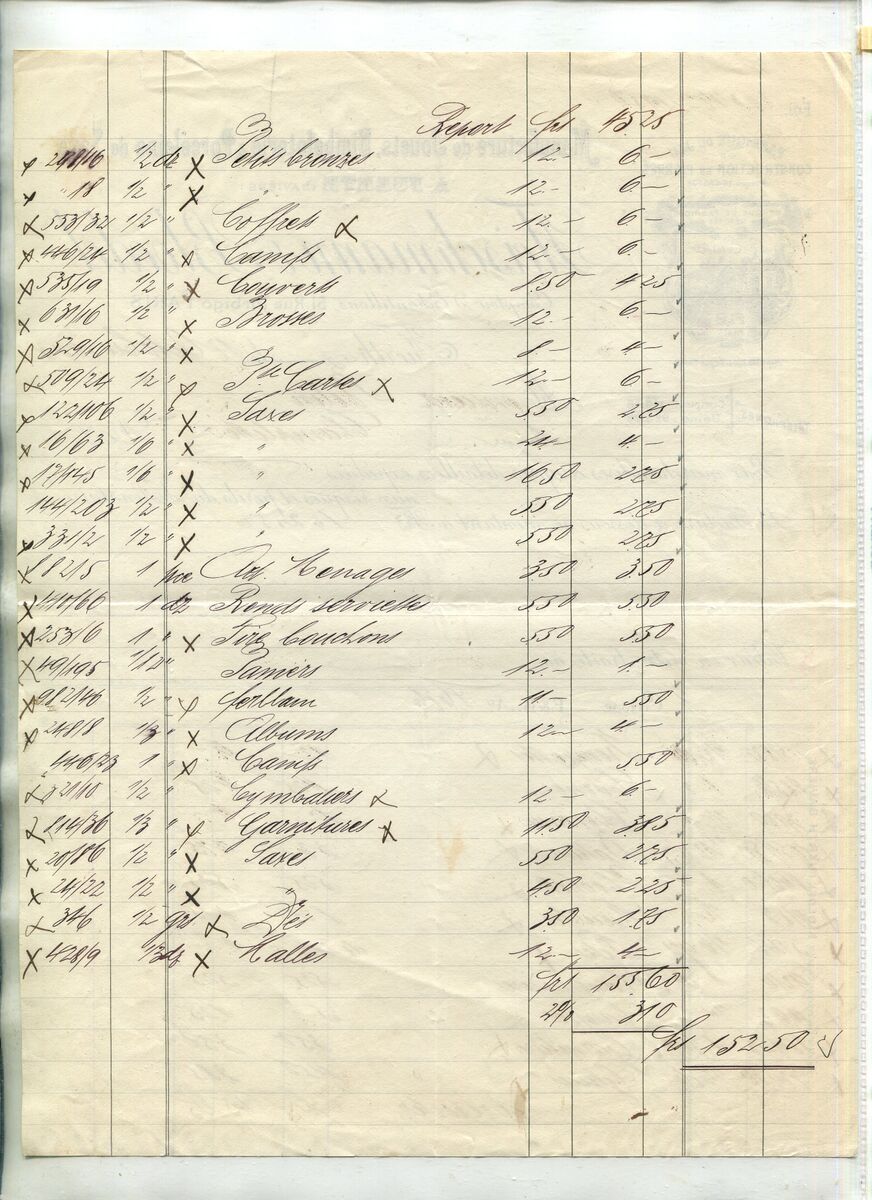 Report frs 45 25
241/16 1/2 dz Petits bronzes 12.— 6.—
" 18 1/2 " " 12.— 6.—
553/32 1/2 " Coffrets 12.— 6.—
446/24 1/2 " Canifs 12.— 6.—
535/19 1/2 " Couverts 8.50 4 25
631/16 1/2 " Brosses 12.— 6.—
529/16 1/2 " " 8.— 4.—
509/24 1/2 " P. Cartes 12.— 6.—
122/106 1/2 " Saxes 5 50 2.75
16/63 1/6 " " 24.— 4.—
17/145 1/6 " " 16 50 2.75
144/203 1/2 " " 5 50 2.75
331/2 1/2 " " 5 50 2.75
8215 1 pce Art. Menages 3.50 3.50
410/66 1 dz Ronds serviette 5 50 5.50
253/6 1 " Tire bouchons 5 50 5.50
49/195 1/12 " Paniers 12.— 1.—
982/46 1/2 " 11.— 5.50
248/8 1/3 " Albums 12.— 4.—
446/23 1 " Canifs 5.50
321/10 1/2 " Cymbaliers 12.— 6.—
214/36 1/3 " Garnitures 11.50 3.85
20/86 1/2 " Saxes 5 50 2.75
24/22 1/2 " " 4.50 2.25
346 1/2 grs Dés 3.50 1.75
428/9 1/3 dz Malles 12.— 4.—
frs 155 60
2% 3 10
frs 152 50